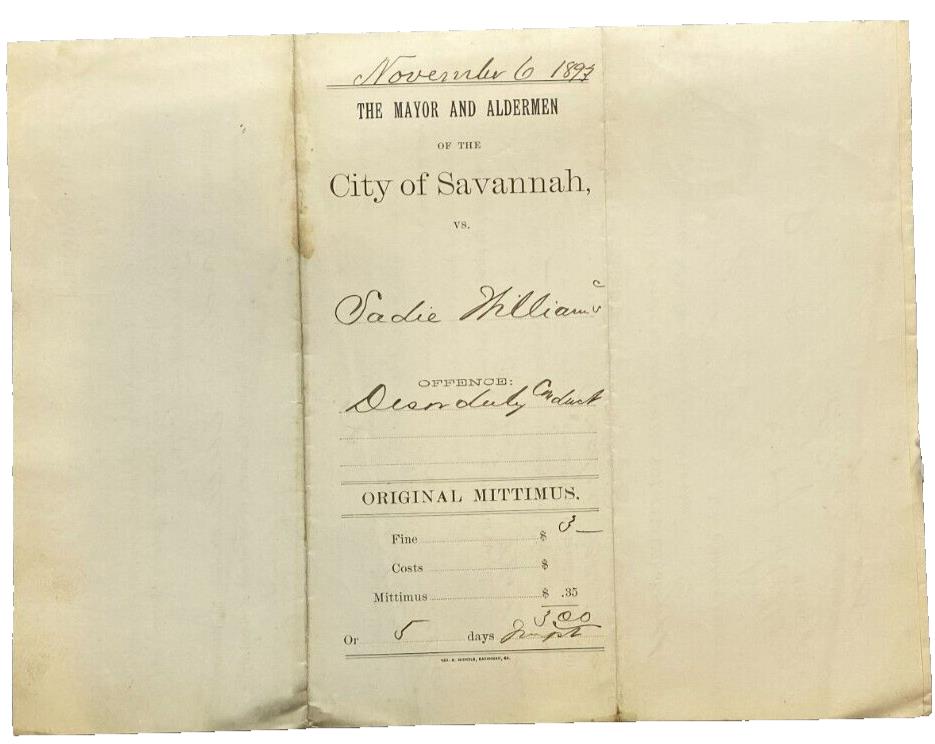 November 6 1897
THE MAYOR AND ALDERMEN
OF THE
City of Savannah,
VS.
Sadie Williams c
OFFENCE:
Disorderly Conduct
ORIGINAL MITTIMUS.
Fine $ 3—
Costs $
Mittimus $ .35
3.00
Or 5 days Impt